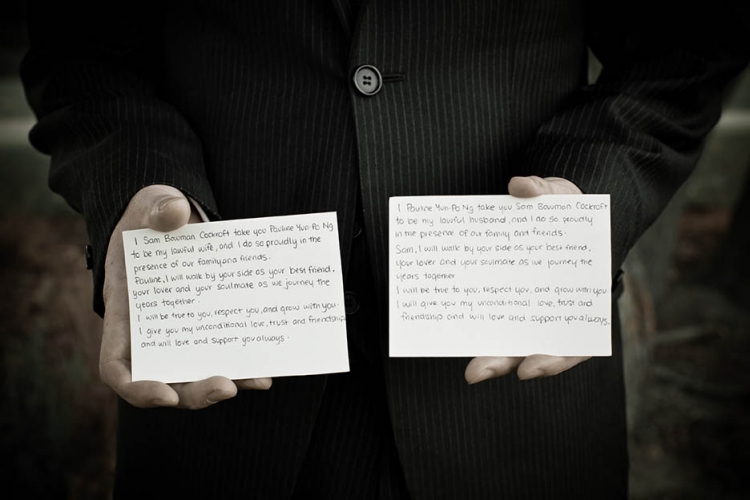 I Sam Bowman Cockroft take you Pauline Yun-Po Ng
to be my lawful wife, and I do so proudly in the
presence of our family and friends.
Pauline, I will walk by your side as your best friend,
your lover and your soulmate as we journey the
years together.
I will be true to you, respect you, and grow with you.
I give you my unconditional love, trust and friendship
and will love and support you always.
I Pauline Yun-Po Ng take you Sam Bowman Cockroft
to be my lawful husband, and I do so proudly
in the presence of our family and friends.
Sam, I will walk by your side as your best friend,
your lover and your soulmate as we journey the
years together
I will be true to you, respect you, and grow with you
I will give you my unconditional love, trust and
friendship and will love and support you always.